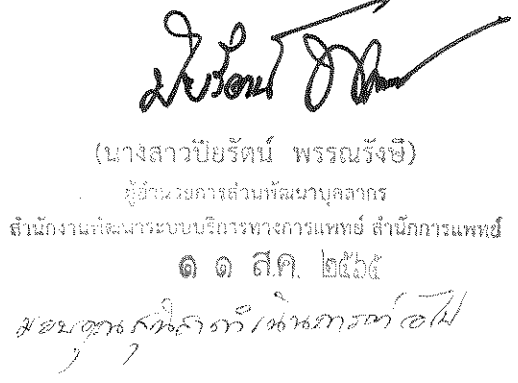 ปิยรัตน์
(นางสาวปิยรัตน์ พรรณรังษี)
ผู้อำนวยการส่วนพัฒนาบุคลากร
สำนักงานพัฒนาระบบบริการทางการแพทย์ สำนักการแพทย์
๑ ๑ ส.ค. ๒๕๖๕
ดำเนินการต่อไป